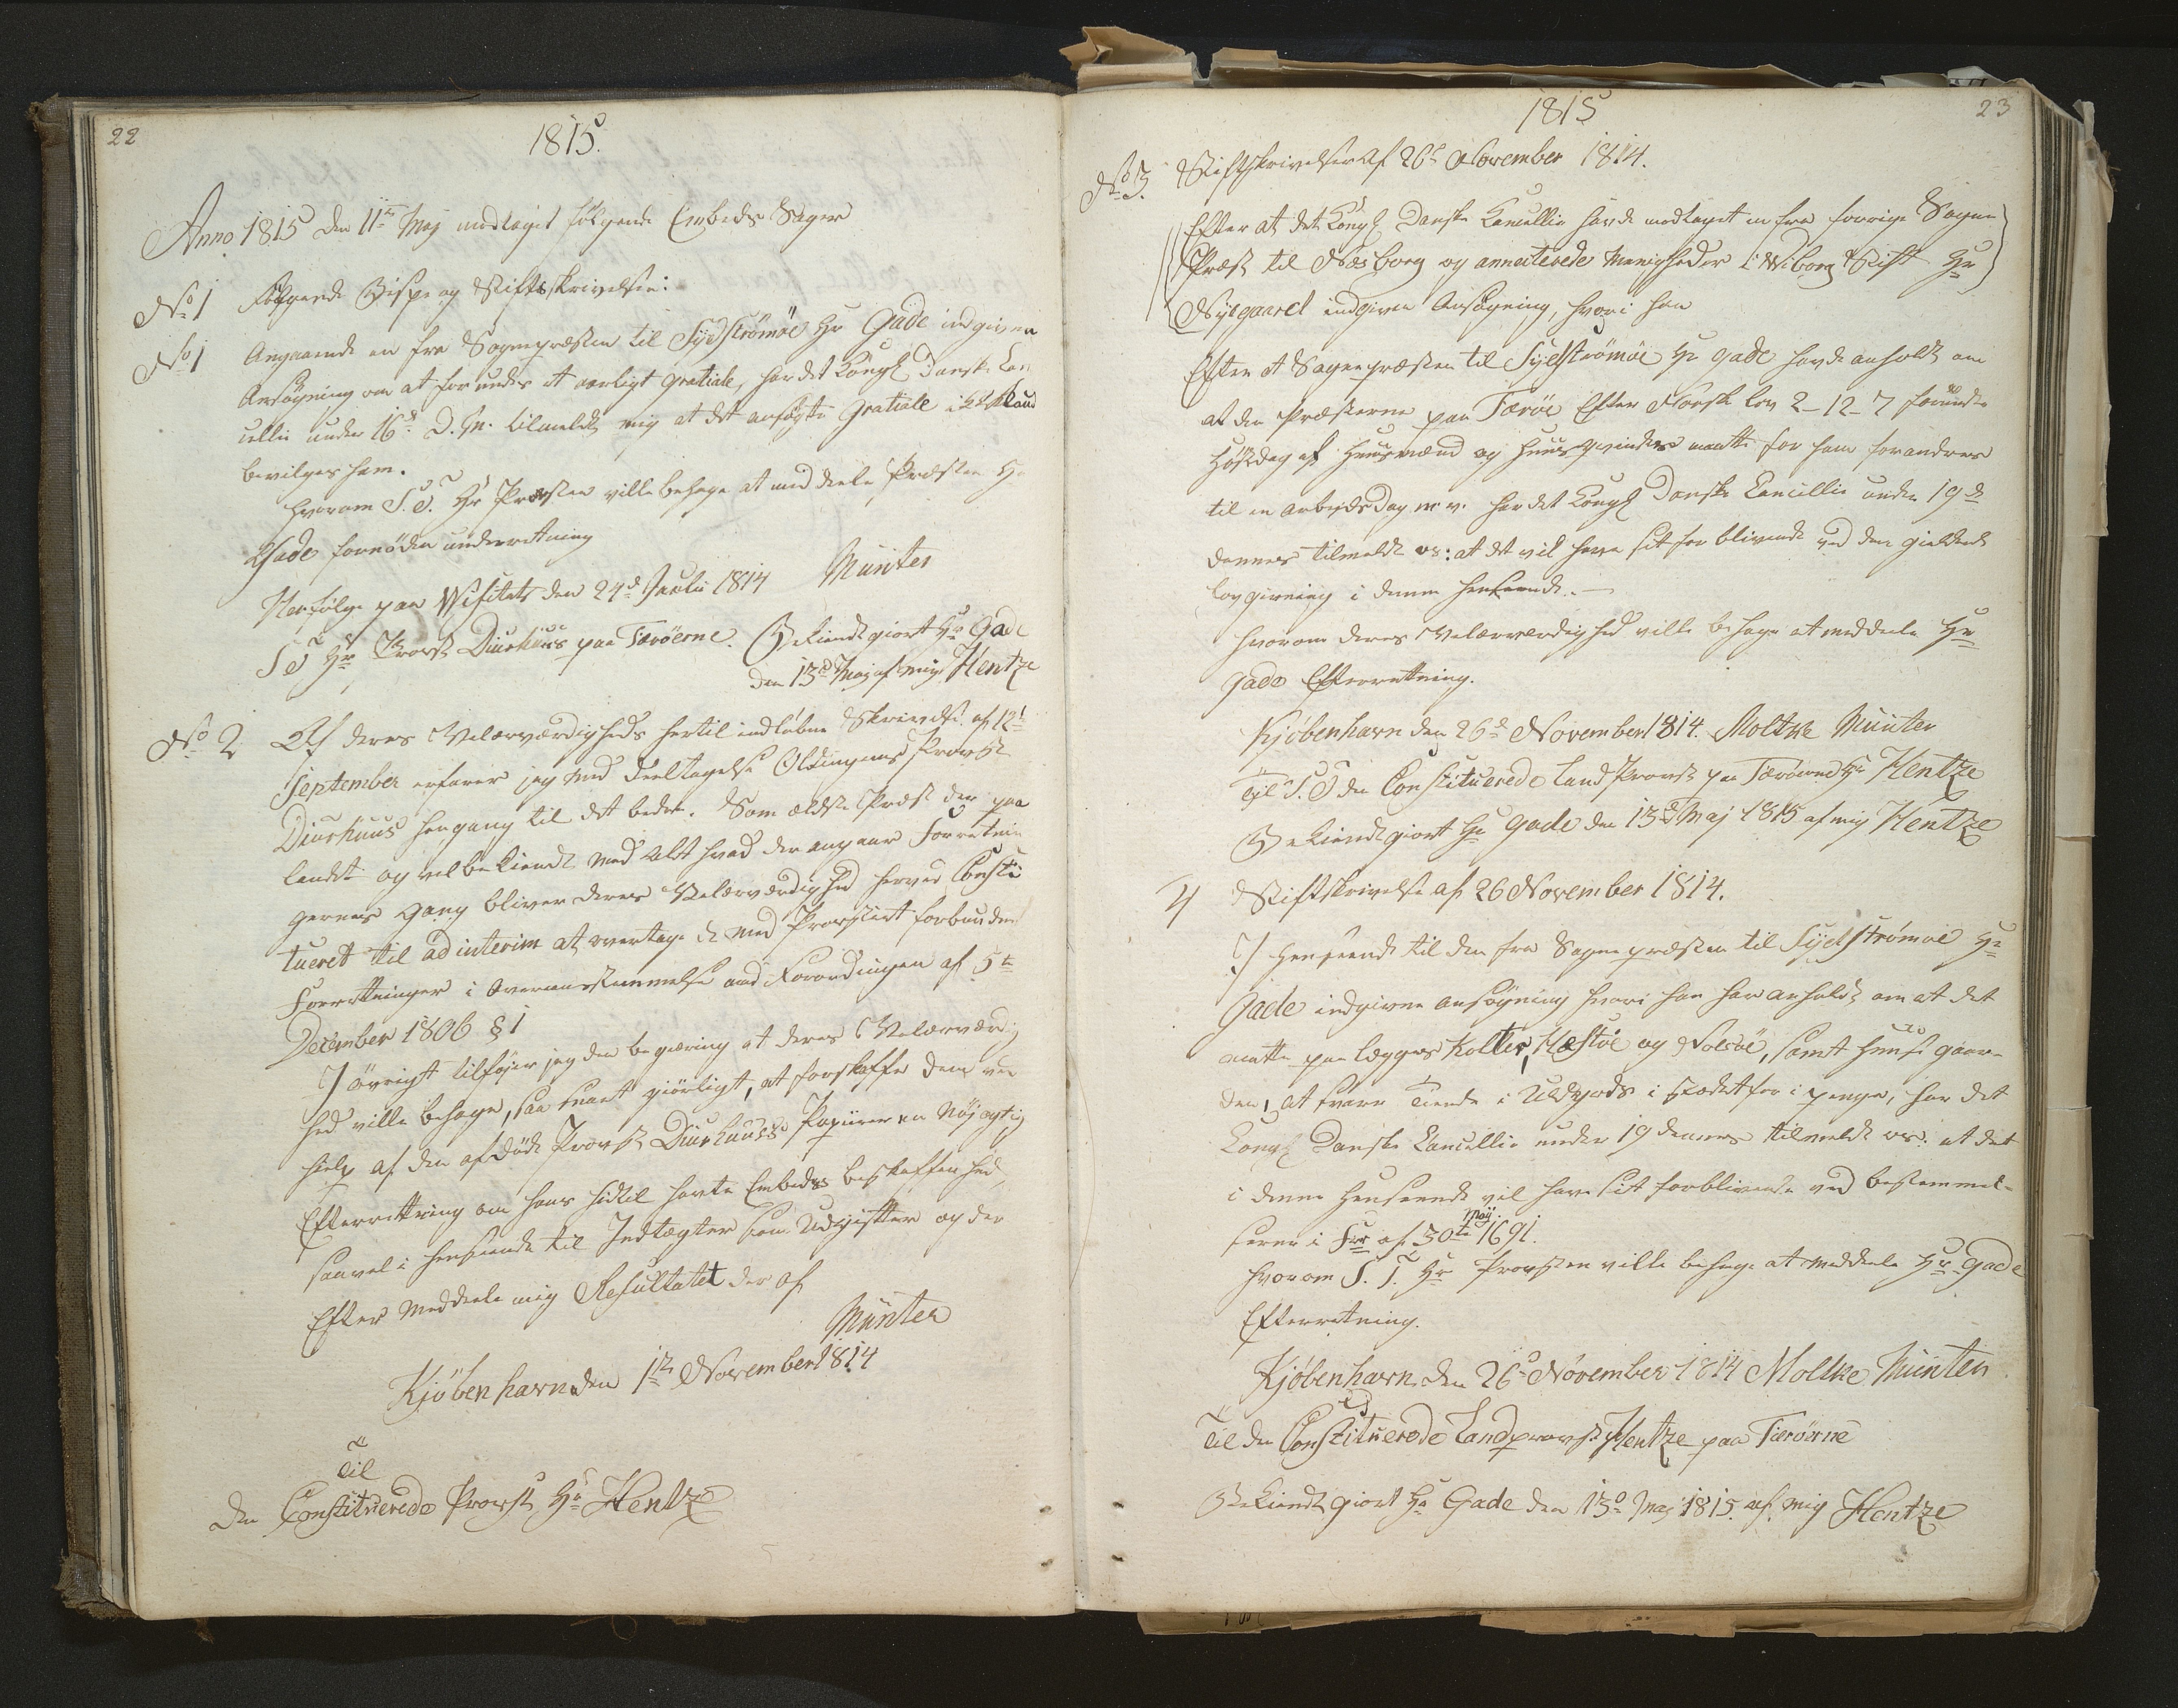 22
1815.
Anno 1815 den 11te Maj modtaget følgende Embeds Sager
No 1 Følgende Bispe og Stiftsskrivelser:
No 1 Angaaende en fra Sognepræsten til Sydströmöe Hr Gade indgiven
Ansøgning om at forundes et aarligt Gratiale, har det Kongl Danske Can
cellie under 16de D. M. tilmeldt mig at det ansøgte Gratiale ikke kand
bevilges ham.
Hvorom S. T. Hr Provsten ville behage at meddeele Præsten Hr
Gade fornøden underretning
Herfølge paa Visitats den 24de Junii 1814 Münter
S T Hr Provst Diurhuus paa Færöerne. Bekiendtgiort Hr Gade
den 13de Maj af mig Hentze
No 2 Af deres Velærværdigheds hertil indløbne Skrivelse af 12te
September erfarer jeg med Deeltagelse Oldingens Provst
Diurhuus hengang til det bedre. Som ældste Præst der paa
landet og vel bekiendt med Alt hvad der angaar Forretnin
gernes gang bliver deres Velærværdighed herved Consti
tueret til ad interim at overtage de med Provstiet forbundne
Forretninger i Overeensstemmelse med Forordningen af 5te
December 1806 § 1
I øvrigt tilføjer jeg den begiæring at deres Velærværdig
hed ville behage, saa snart giørligt, at forskaffe dem ved
hielp af den afdøde Provst Diurhuuses Papiirer en Nøjagtig
Efterretning om hans hidtil havte Embeds beskaffenhed,
saavel i henseende til Indtægter som Udgifter og der
Efter meddeele mig Resultatet der af
Münter
Kjöbenhavn den 1te November 1814
Til
den Constituerede Provst Hr Hentze
1815
23
No 3. Stiftsskrivelse af 26de November 1814.
Efter at det Kongl Danske Cancellie havde modtaget en fra forrige Sogne
Præst til Næsborg og annecterede Menigheder i Wiborg Stift Hr
Nysgaard indgiven Ansøgning, hvori han
Efter at Sognepræsten til Sydströmöe Hr Gade havde anholdt om
at den Præsterne paa Færöe Efter Norske lov 2-12-7 forundte
Høstdag af Huusmænd og Huusqvinder maatte for ham forandres
til en Arbejdsdag m. v. har det Kongl Danske Cancellie under 19de
dennes tilmeldt os: at det vil have sit forblivende ved den gieldende
lovgivning i denne henseende. —
Hvorom deres Velærværdighed ville behage at meddeele Hr
Gade Efterretning.
Kjöbenhavn den 26de November 1814. Moltke Münter
Til S. T den Constituerede Land Provst paa Færöerne Hr Hentze
Bekiendtgiort Hr Gade den 13de Maj 1815 af mig Hentze
4 Stiftsskrivelse af 26 November 1814.
I Henseende til den fra Sognepræsten til Sydströmöe Hr
Gade indgivne Ansøgning hvori han har anholdt om at det
maatte paalægges Kolter, Hestöe og Nolsöe, samt Huusegaar-
den, at svare Tiende i Uldgods i stædet for i penge, har det
Kongl Danske Cancellie under 19 dennes tilmeldt os: at det
i denne Henseende vil have sit forblivende ved bestemmel-
serne i Frr af 30te Maji 1691.
Hvorom S. T. Hr Provsten ville behage at meddeele Hr Gade
Efterretning.
Kjöbenhavn den 26de November 1814 Moltke Münter
Til den Constituerede Landprovst Hentze paa Færöerne
Bekiendtgiort Hr Gade den 13de Maj 1815. af mig Hentze